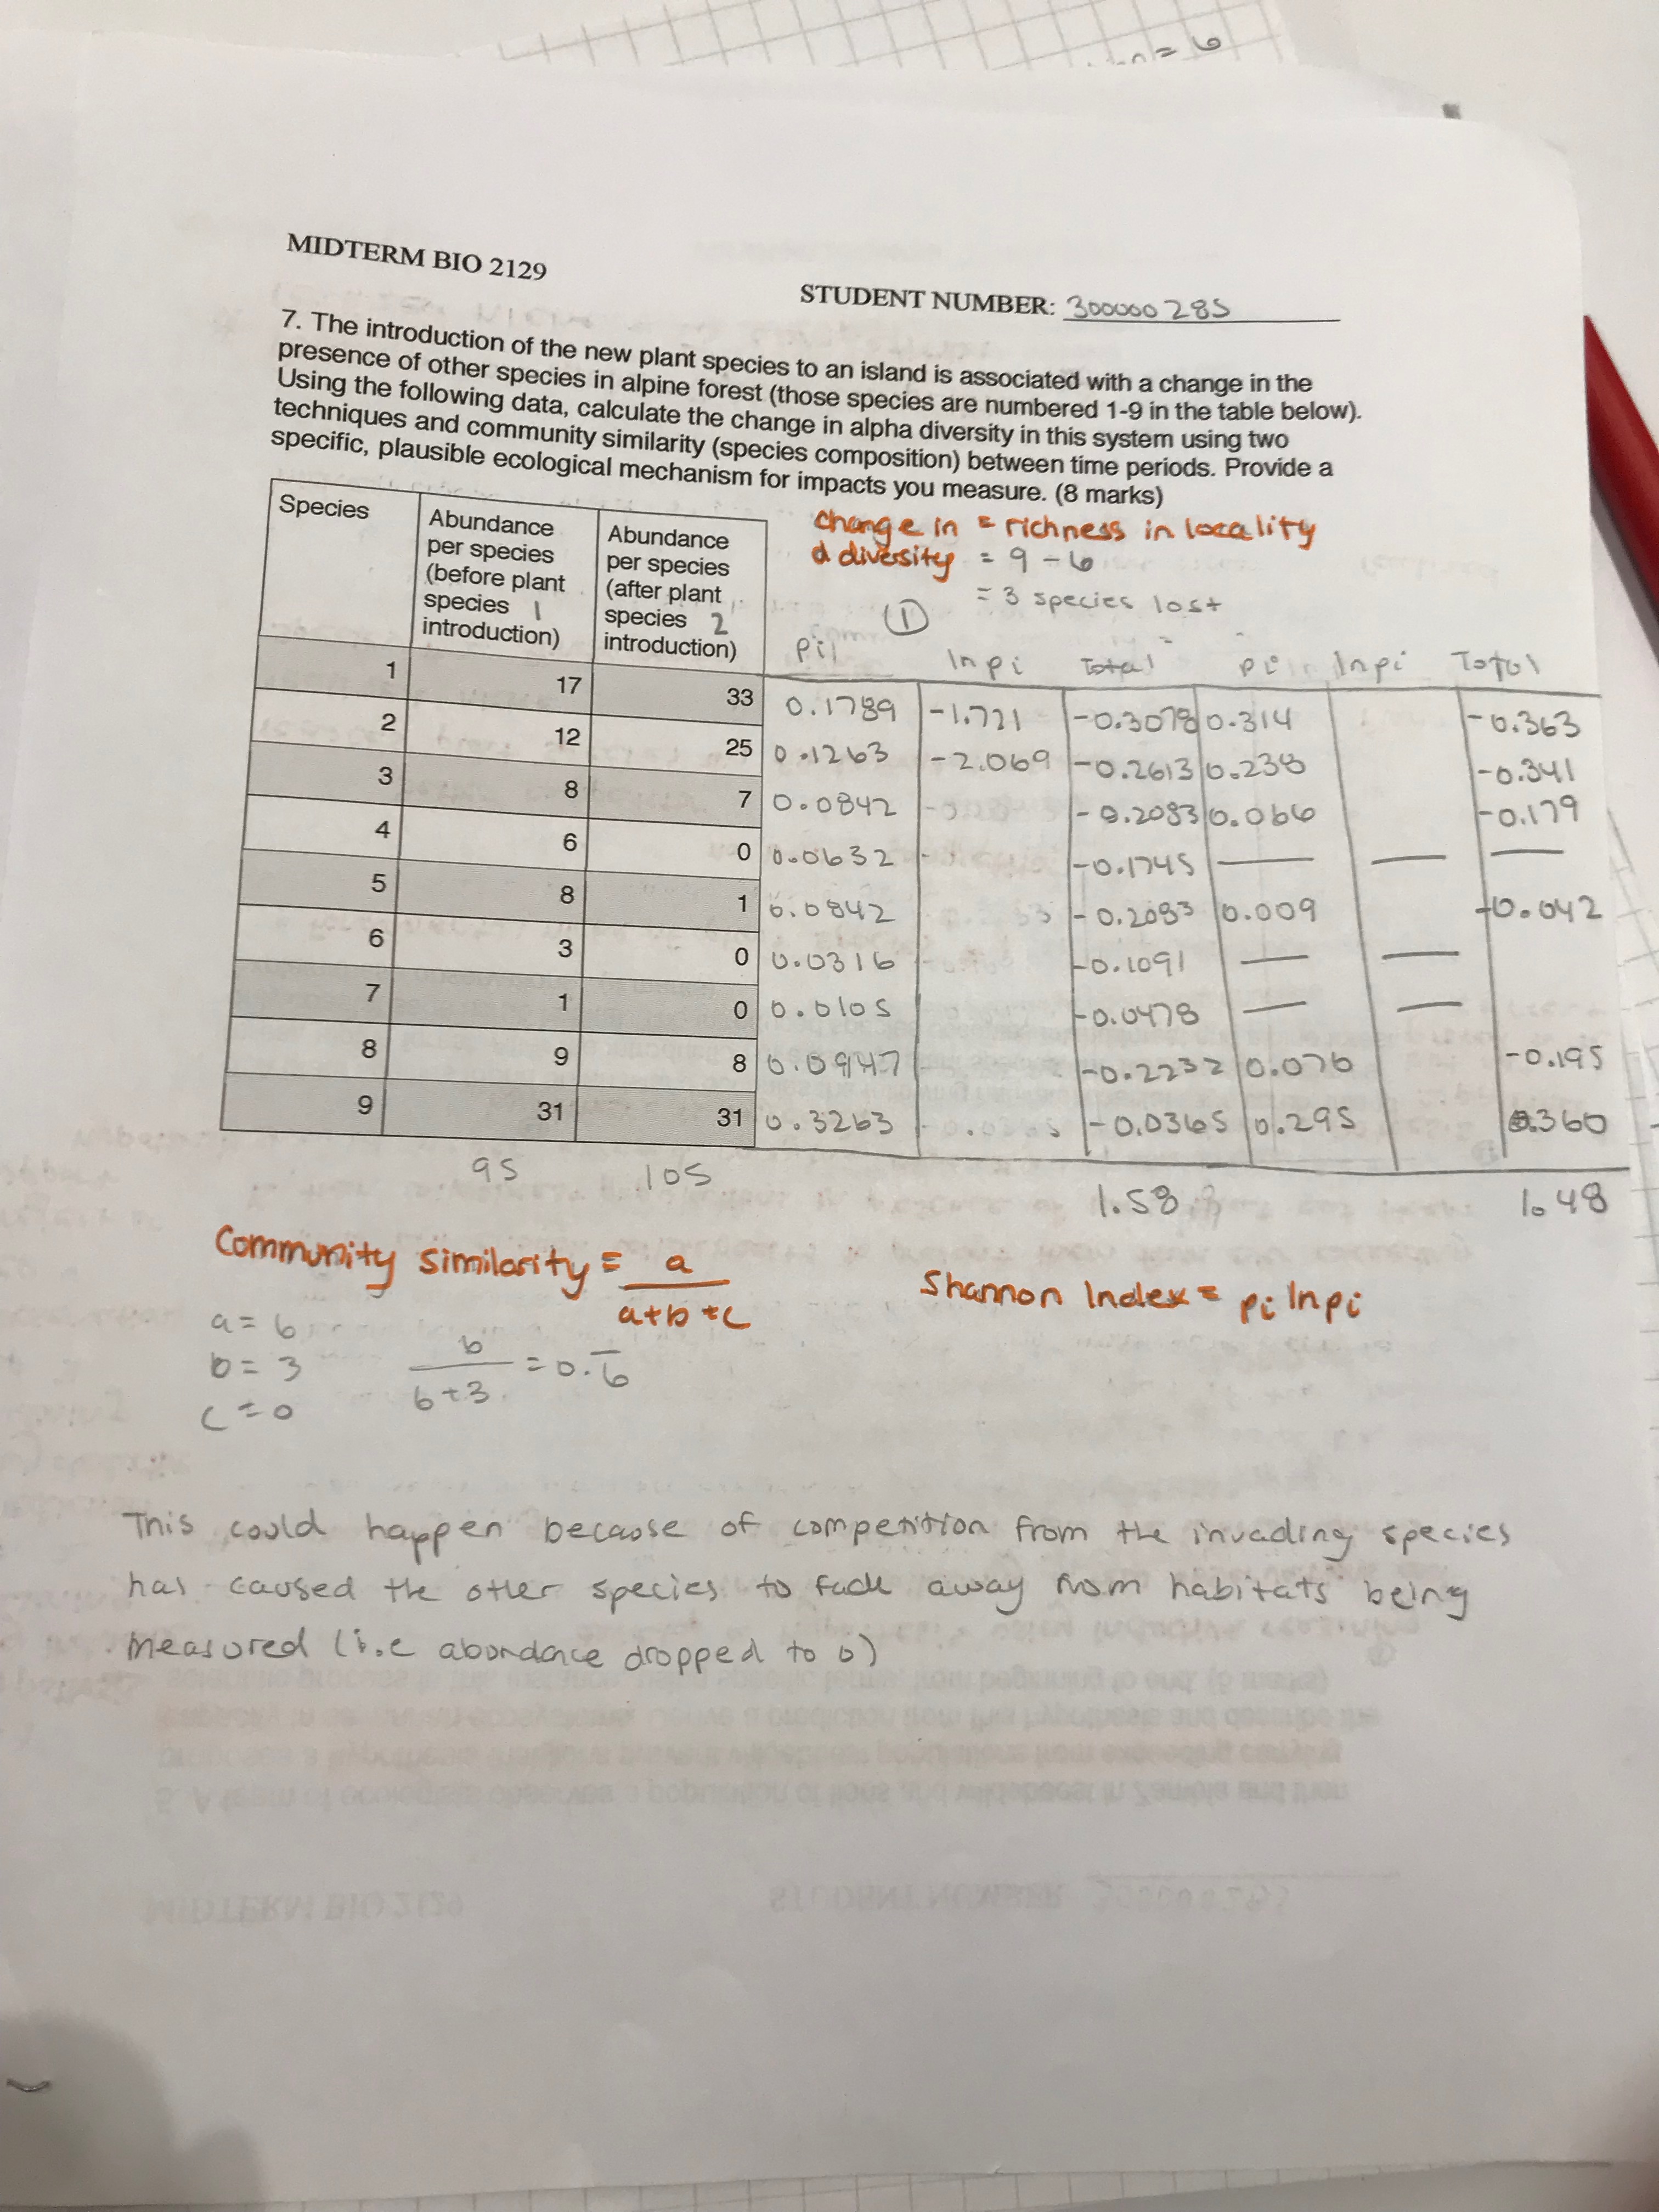 n = 6
MIDTERM BIO 2129
STUDENT NUMBER: 300000285
7. The introduction of the new plant species to an island is associated with a change in the
presence of other species in alpine forest (those species are numbered 1-9 in the table below).
Using the following data, calculate the change in alpha diversity in this system using two
techniques and community similarity (species composition) between time periods. Provide a
specific, plausible ecological mechanism for impacts you measure. (8 marks)
change in = richness in locality
α diversity = 9 - 6
= 3 species lost
①
Species
Abundance per species (before plant species 1 introduction)
Abundance per species (after plant species 2 introduction)
pi ln pi Total pi ln pi Total
1 17 33 0.1789 -1.721 -0.3078 0.314 -0.363
2 12 25 0.1263 -2.069 -0.2613 0.238 -0.341
3 8 7 0.0842 -0.2083 0.066 -0.179
4 6 0 0.0632 -0.1745 — — —
5 8 1 0.0842 -0.2083 0.009 -0.042
6 3 0 0.0316 -0.1091 — —
7 1 0 0.0105 -0.0478 — —
8 9 8 0.0947 -0.2232 0.076 -0.195
9 31 31 0.3263 -0.0365 0.295 0.360
95 105 1.58 1.48
Community similarity = a / a+b+c
Shannon Index = pi ln pi
a = 6
b = 3 6 / 6+3 = 0.6̅
c = 0
This could happen because of competition from the invading species
has caused the other species to fade away from habitats being
measured (i.e abundance dropped to 0)